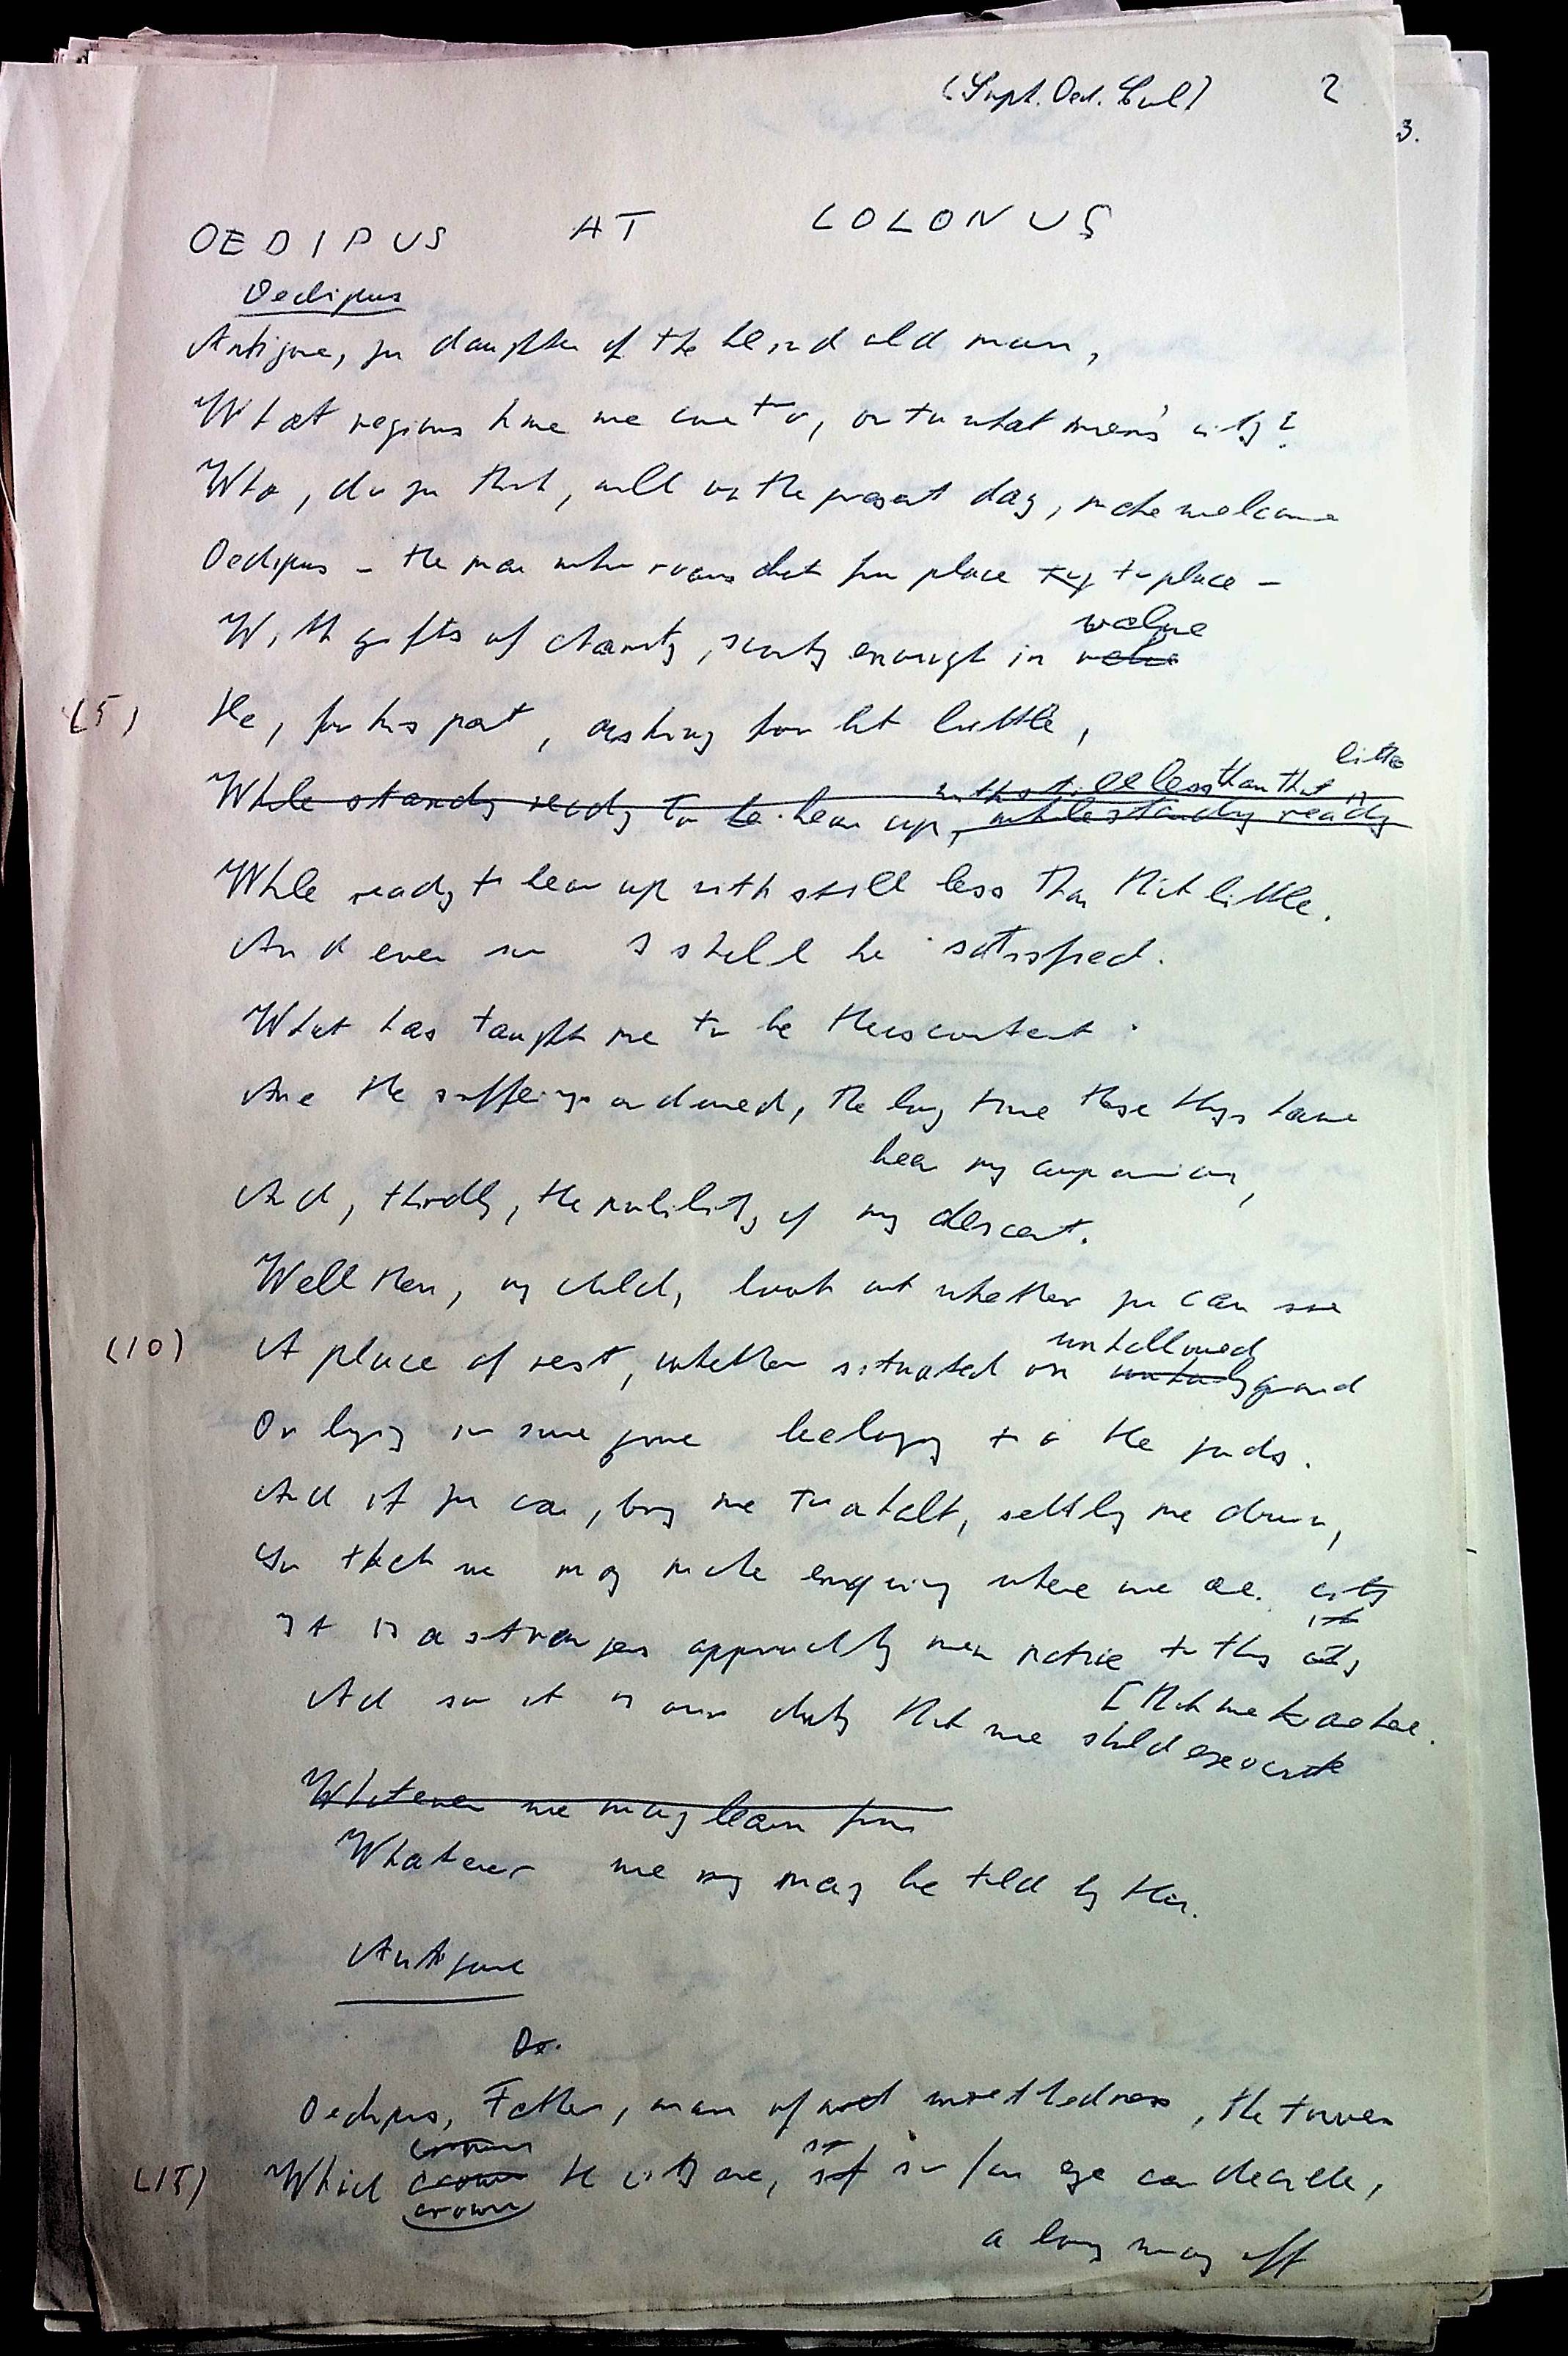 (Soph. Oed. Col) 2
3.
OEDIPUS AT COLONUS
Oedipus
Antigone, you daughter of the blind old man,
What regions have we come to, or to what men's city?
Who, do you think, will on the present day, make welcome
Oedipus - the man who roams about from place to place -
value
With gifts of charity, scanty enough in value
(5) He, for his part, asking for but little,
little
with still less than that
While standing ready to be bear up, while standing ready
While ready to bear up with still less than that little.
And even so I shall be satisfied.
What has taught me to be thus content
Are the sufferings endured, the long time these things have
been my companions,
And, thirdly, the nobility of my descent.
Well then, my child, look out whether you can see
unhallowed
(10) A place of rest, whether situated on unholy ground
Or lying in some grove belonging to the gods.
And if you can, bring me to a halt, settling me down,
So that we may make enquiry where we are.
city
It is as strangers approaching men native to this city
[that we are here.
And so it is our duty that we should execute
Whatever we may learn from
Whatever we may may be told by them.
Antigone
Oe.
Oedipus, Father, man of wretchedness, the towers
crown
(15) Which crown the city are, so far so far my eye can decide,
crown
a long way off